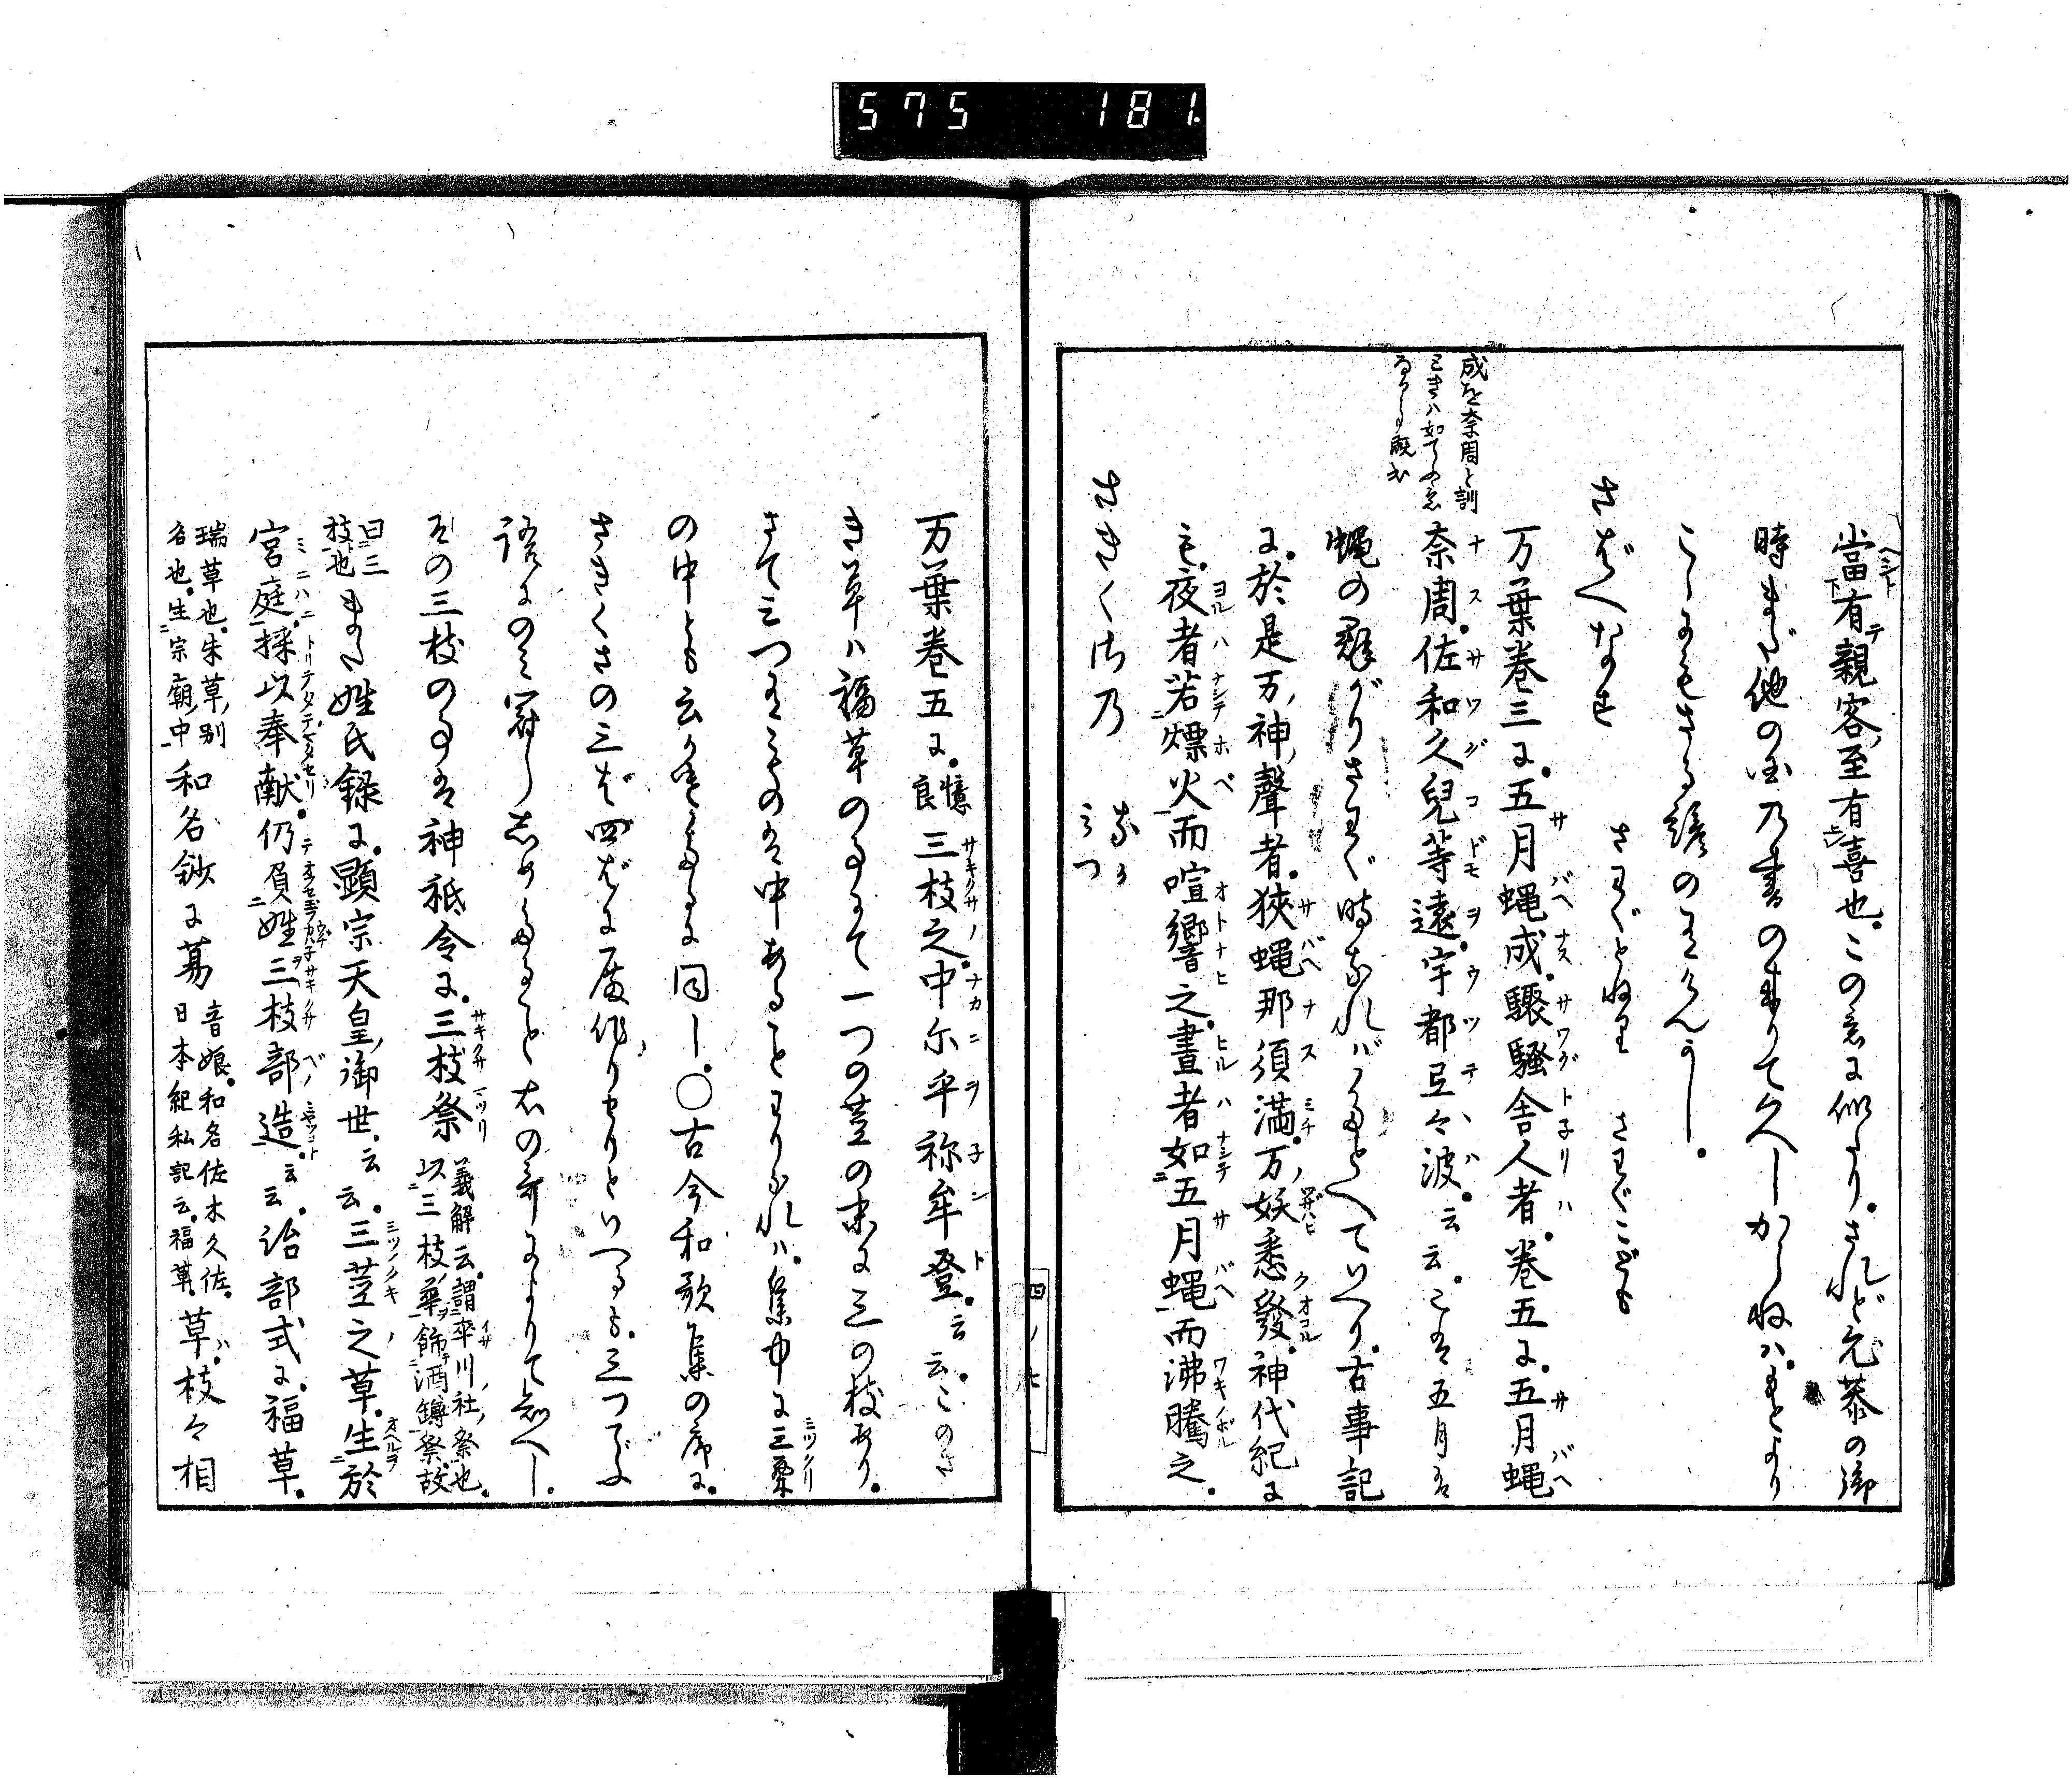 575 181.
當有親客至有喜也。この意に似たり。されど允恭の御
時まだ他の国乃書のまゐりて久しからねば。もとより
こゝにもさる諺のありけんかし。
さばへなす さわぐとねり さわぐこども
成を奈周と訓
万葉卷三に。五月蝿成。驟騒舎人者。卷五に。五月蝿
奈周。佐和久兒等遠。宇都弖々波。云云。こは五月は
蝿の群がりさわぐ時なれバ。たとへていへり。古事記
に。於是万神聲者。狭蝿那須満。万妖悉發。神代紀に
も。夜者若熛火而喧響之。晝者如五月蝿而沸騰之。
さきくさ乃 なか みつ
四ノ七
万葉卷五に。憶良 三枝之。中尓乎祢牟登。云云。このさ
き草ハ福草の事にて一つの茎の末に三の枝あり。
さて三つあるものは中あることわりなれハ。集中に三栗
の中とも云かけたるに同し。○古今和歌集の序に。
さきくさの三ば四ばに殿作りせりといへるも。三つてふ
語にのみ冠らしめたること右の哥によりて知へし。
その三枝の事は神祇令に。三枝祭 義解云。謂率川社祭也。以三枝華飾酒罇祭。故
曰三枝也 また姓氏録に。顕宗天皇御世。云云。三茎之草。生於
宮庭。採以奉献。仍負姓三枝部造。云云。治部式に。福草。
瑞草也。朱草別名也。生宗廟中 和名鈔に葛 音娘。和名佐木久佐。日本紀私記云。福草。 草枝々相